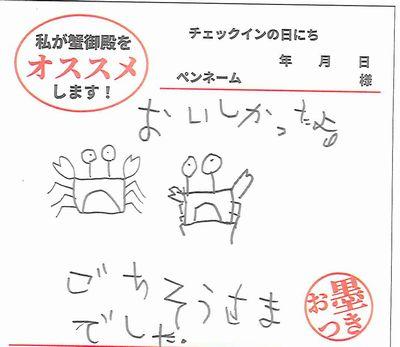 私が蟹御殿を
オススメ
します！
チェックインの日にち
年 月 日
ペンネーム 様
おいしかったよ
ごちそうさま
でした。
お墨
つき